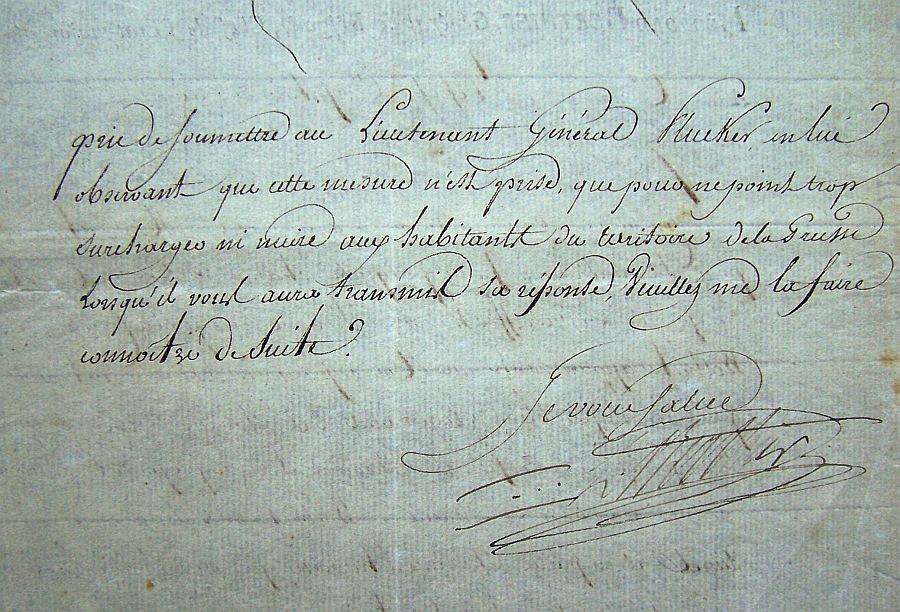 prie de soumettre au Lieutenant Général Klucker en lui
observant que cette mesure n'est prise, que pour ne point trop
surcharger ni nuire aux habitants du territoire de la Prusse
Lorsqu'il vous aura transmis sa réponse, Veuillez me la faire
connoitre de suite.
Je vous salue